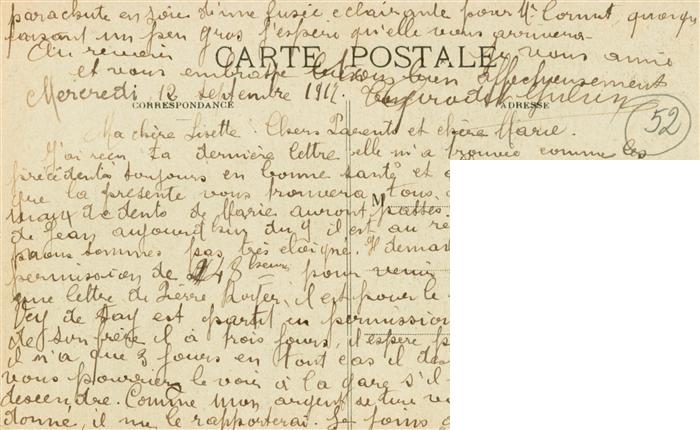 parachute en soie d'une fusée eclairante pour Mr Cornut, quoique
faisant un peu gros j'espère qu'elle vous arrivera
Au revoir je vous aime
CARTE POSTALE
et vous embrasse tous bien affectueusement
Mercredi 12 septembre 1917.
CORRESPONDANCE ADRESSE
52
Ma chère Lisette. Chers Parents et chère Marie.
J'ai reçu ta dernière lettre elle m'a trouvée comme les
précédents toujours en bonne santé et
que la présente vous trouvera tous
M
maux de dents de Marie auront passés.
de Jean aujourd'hui du 9 il est au re
nous sommes pas très éloigné. Il demar
permission de 48 heures pour venir
une lettre de Pierre, il est pour le
est partit en permission
de son frère il à trois jours, il espère p
il n'a que 3 jours en tout cas il des
vous pourriez le voir à la gare s'il
descendre. Comme mon argent
donné, il me le rapporterai. Je